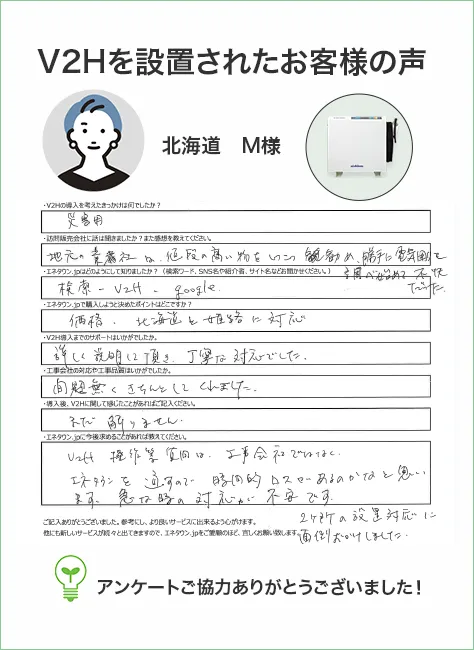 V2Hを設置されたお客様の声
北海道 M様
・V2Hの導入を考えたきっかけは何でしたか？
災害用
・訪問販売会社に話は聞きましたか？また感想を教えてください。
地元の業者社は、値段の高い物をいつも勧め、勝手に
不快
でした。
・エネタウン.jpはどのようにして知りましたか？（検索ワード、SNS名や紹介者、サイト名などお聞かせください。）
検索 - V2H - google.
・エネタウン.jpで購入しようと決めたポイントはどこですか？
価格、北海道と姫路に対応
・V2H導入までのサポートはいかがでしたか。
詳しく説明して頂き、丁寧な対応でした。
・工事会社の対応や工事品質はいかがでしたか。
問題無くきちんとしてくれました。
・導入後、V2Hに関して感じたことがあればご記入ください。
まだ解りません。
・エネタウン.jpに今後求めることがあれば教えてください。
V2H 操作等質問は、工事会社ではなく
エネタウンを通すので 時間的ロスがあるのかなと思い
ます。急な時の対応が不安です。
2ヶ所の設置対応に
面倒おかけしました。
ご記入ありがとうございました。参考にし、より良いサービスに出来るよう心がけます。
他にも新しいサービスが続々と出てきますので、エネタウン.jpをご愛顧のほど、宜しくお願い致します。
アンケートご協力ありがとうございました！